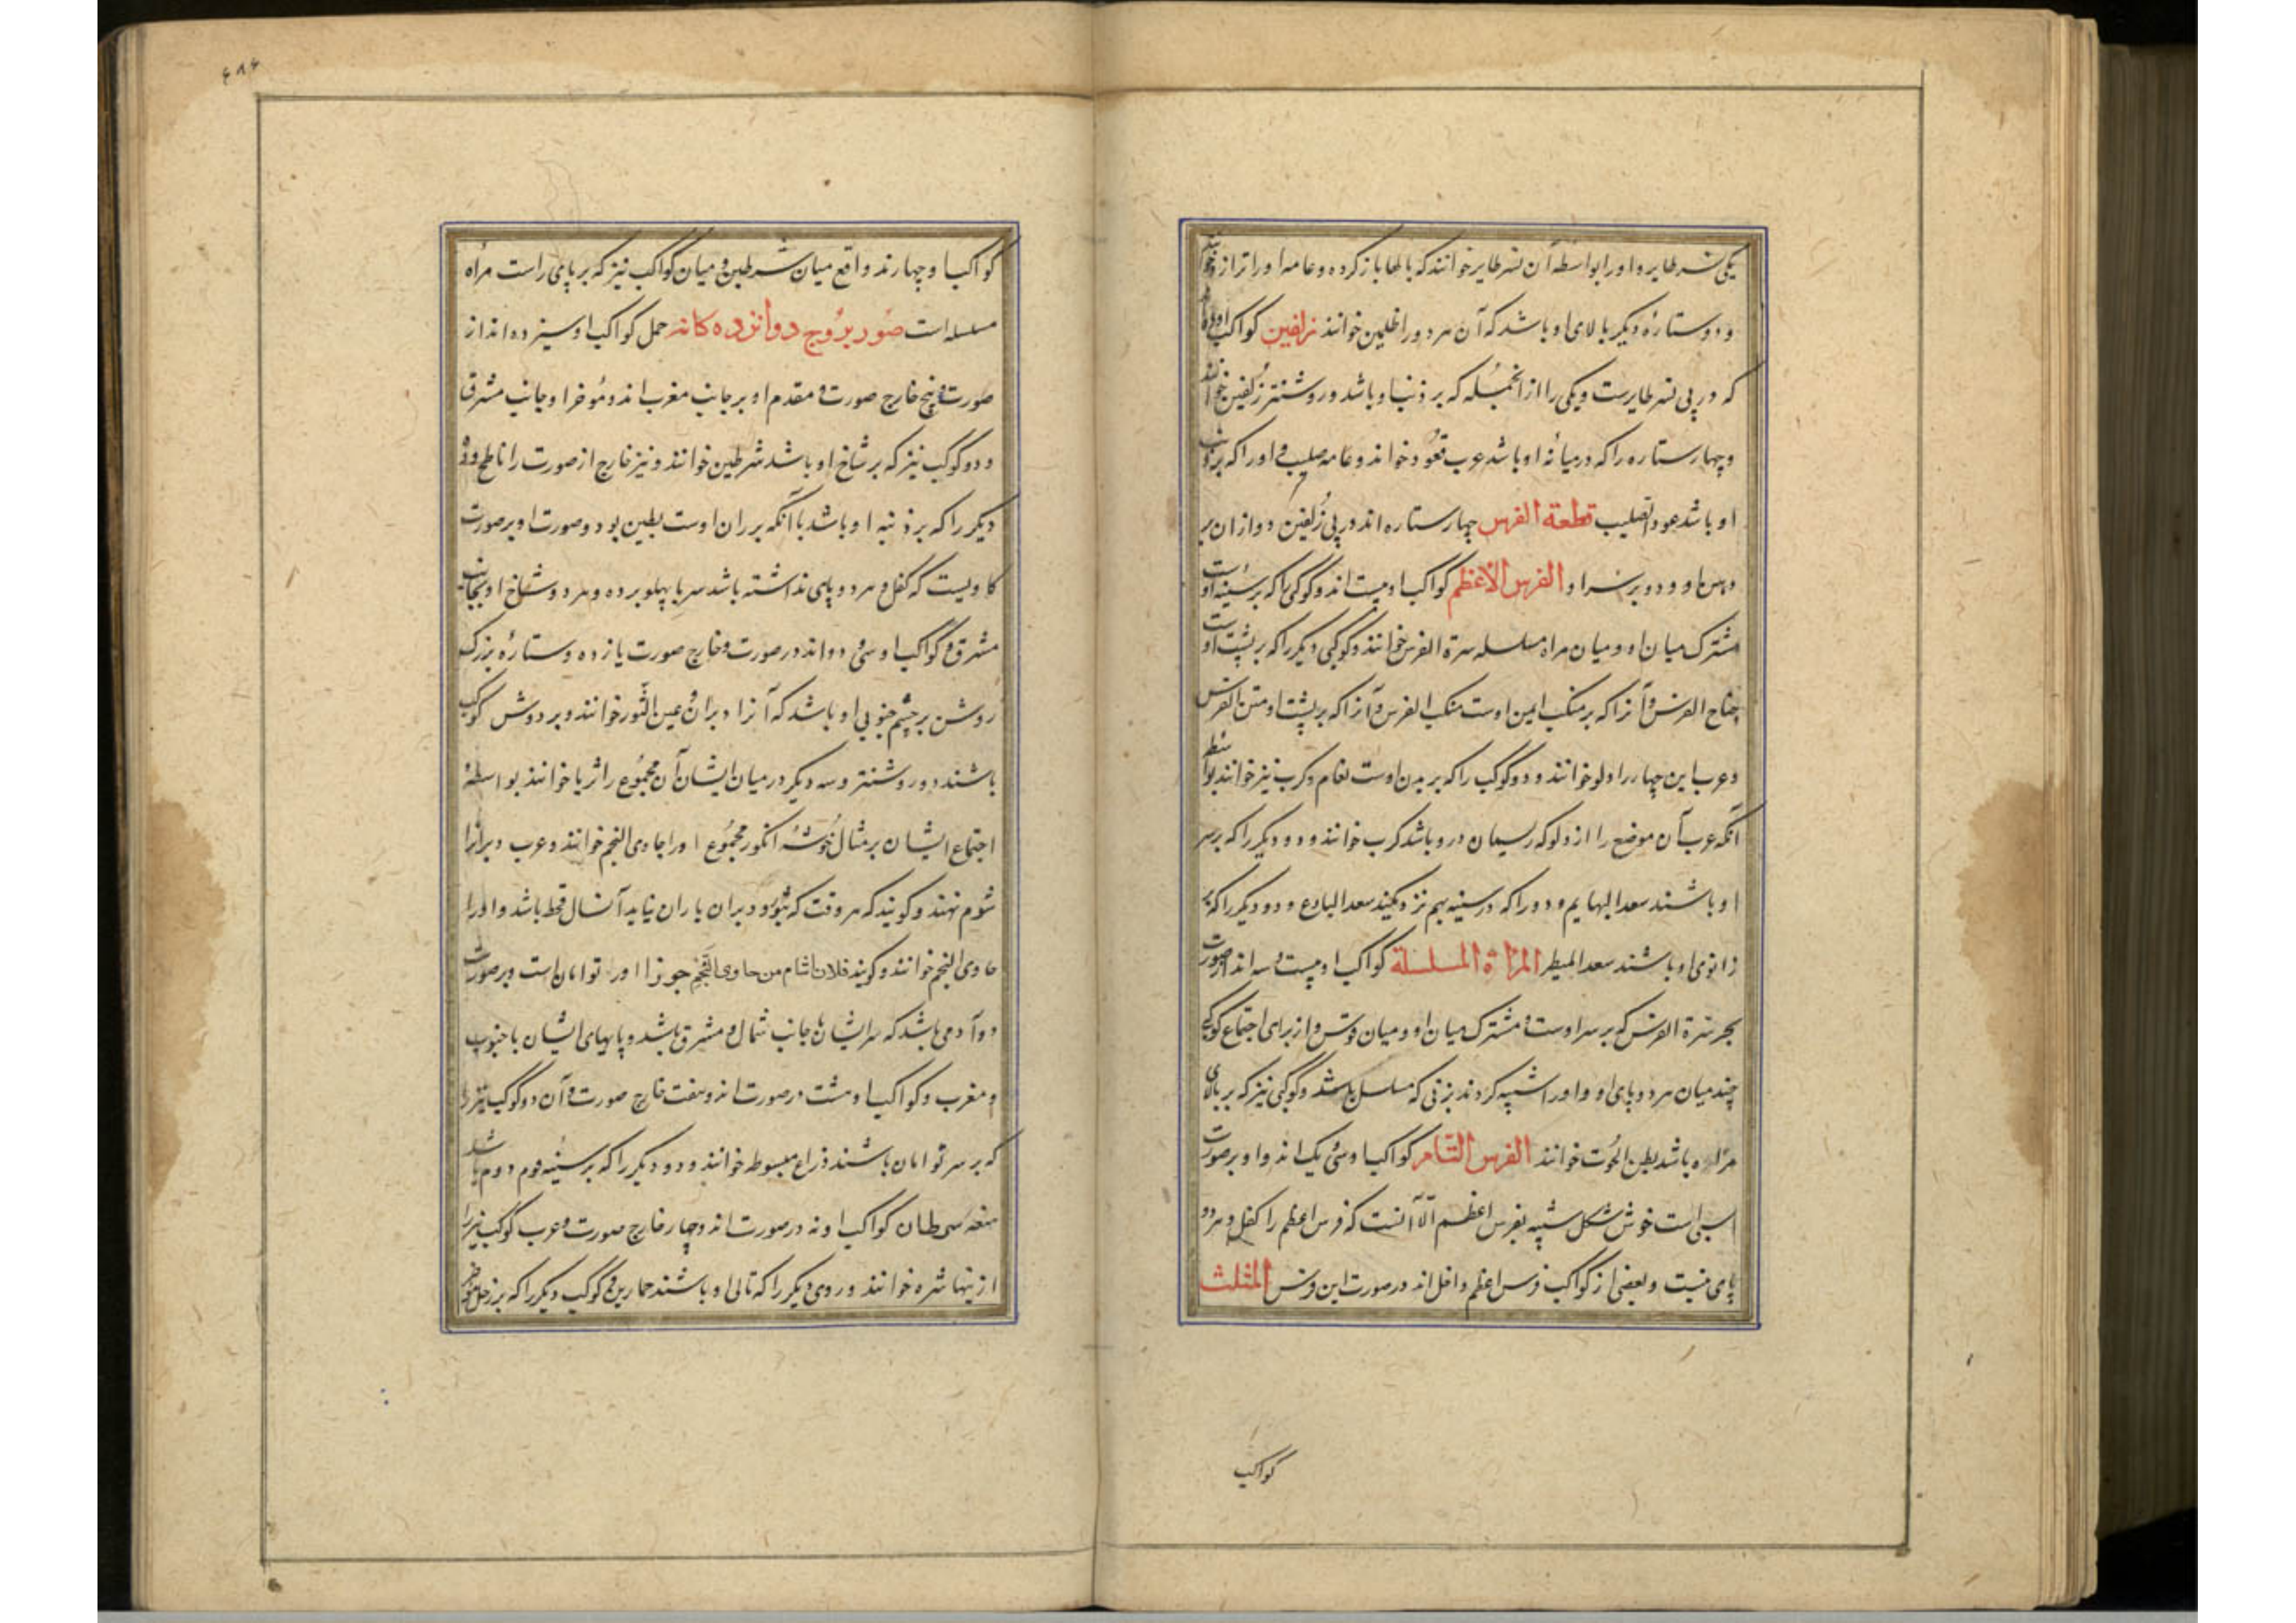 یکی نسر طایر و او را بواسطه آن نسر طایر خوانند که بالها باز کرده و عامه او را ترازو خوانند
و دو ستاره دیکر بالای او باشد که آن هر دو را ظلیمین خوانند زلفین کواکب او ده اند
که در پی نسر طایرست و یکی را از انجمله که بر ذنب او باشد و روشنتر زلفین خوانند
و چهار ستاره را که در میانه او باشد عرب قعود خواند و عامه صلیب و او را که بر ذنب
او باشد عمود الصلیب قطعة الفرس چهار ستاره اند در پی زلفین دو ازان بر
دهن او و دو بر سر او الفرس الاعظم کواکب او بیست اند و کوکبی که بر سینه اوست
مشترک میان او و میان مراه مسلسله سرة الفرس خوانند و کوکبی دیکر را که بر پشت اوست
جناح الفرس و آنرا که بر منکب ایمن اوست منکب الفرس و آنرا که بر پشت او متن الفرس
و عرب این چهار را دلو خوانند و دو کوکب را که بر بدن اوست نعام و کرب نیز خوانند بواسطه
آنکه عرب آن موضع را از دلو که ریسمان درو باشد کرب خوانند و دو دیکر را که بر سر
او باشند سعد البهایم و دو را که در سینه بهم نزدیکند سعد البارع و دو دیکر را که بر
زانوی او باشند سعد المطر المراة المسلسلة کواکب او بیست و سه اند از صورت
بجز سرة الفرس که بر سر اوست و مشترک میان او و میان فرس و از برای اجتماع کوکبی
چند میان هر دو پای او او را شبیه کردند بزنی که مسلسل باشد و کوکبی نیز که بر بالای
مراه باشد بطن الحوت خوانند الفرس التام کواکب او سی و یک اند و او بر صورت
اسبی است خوش شکل شبیه بفرس اعظم الا آنست که فرس اعظم را کفل و هر دو
پای نیست و بعضی از کواکب فرس اعظم داخل اند در صورت این فرس المثلث
کواکب
۴۸۶
کواکب او چهارند واقع میان شرطین و میان کواکب نیز که بر پای راست مراه
مسلسله است صور بروج دوازده کانه حمل کواکب او سیزده اند از
صورت و پنج خارج صورت و مقدم او بر جانب مغرب اند و موخر او جانب مشرق
و دو کوکب نیز که بر شاخ او باشد شرطین خوانند و نیز خارج از صورت را ناطح و دو
دیکر را که بر ذنبه او باشد با آنکه بر ران اوست بطین بود و صورت او بر صورت
کاویست که کفل و هر دو پای نداشته باشد سر با پهلو برده و هر دو شاخ او بجانب
مشرق و کواکب او سی و دو اند در صورت و خارج صورت یازده و ستاره بزرک
روشن بر چشم جنوبی او باشد که آنرا دبران و عین الثور خوانند و بر دوش کوکب
باشند دو روشنتر و سه دیکر در میان ایشان آن مجموع را ثریا خوانند بواسطه
اجتماع ایشان بر مثال خوشه انکور مجموع او را حادی النجم خوانند و عرب دبران را
شوم نهند و کویند که هر وقت که بنوء دبران باران نیاید آنسال قحط باشد و او را
حادی النجم خوانند و کویند فلان اشام من حاوی النجم جوزا او را توامان است و بر صورت
دو آدمی باشد که سر ایشان با جانب شمال و مشرق باشد و پایهای ایشان با جنوب
و مغرب و کواکب او هشت در صورت اند و هفت خارج صورت و آن دو کوکب نیز را
که بر سر توامان باشند ذراع مبسوطه خوانند و دو دیکر را که بر سینه دوم باشد
هنعه سرطان کواکب او نه در صورت اند و چهار خارج صورت و عرب کوکب نیز را
از ینها نثره خوانند و دوی دیکر را که تالی او باشند حمارین و کوکب دیکر را که بر رجل موخر